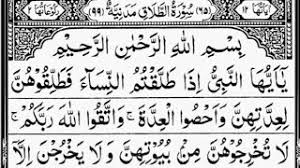 اٰیَاتُهَا ١٢ (٦٥) سُوْرَةُ الطَّلَاقِ مَدَنِيَّةٌ (٩٩) رُكُوْعَاتُهَا ٢
بِسْمِ اللهِ الرَّحْمٰنِ الرَّحِيْمِ
يٰۤاَيُّهَا النَّبِيُّ اِذَا طَلَّقْتُمُ النِّسَآءَ فَطَلِّقُوْهُنَّ
لِعِدَّتِهِنَّ وَاَحْصُوا الْعِدَّةَ ۚ وَاتَّقُوا اللهَ رَبَّكُمْ ۚ
لَا تُخْرِجُوْهُنَّ مِنْۢ بُيُوْتِهِنَّ وَلَا يَخْرُجْنَ اِلَّاۤ